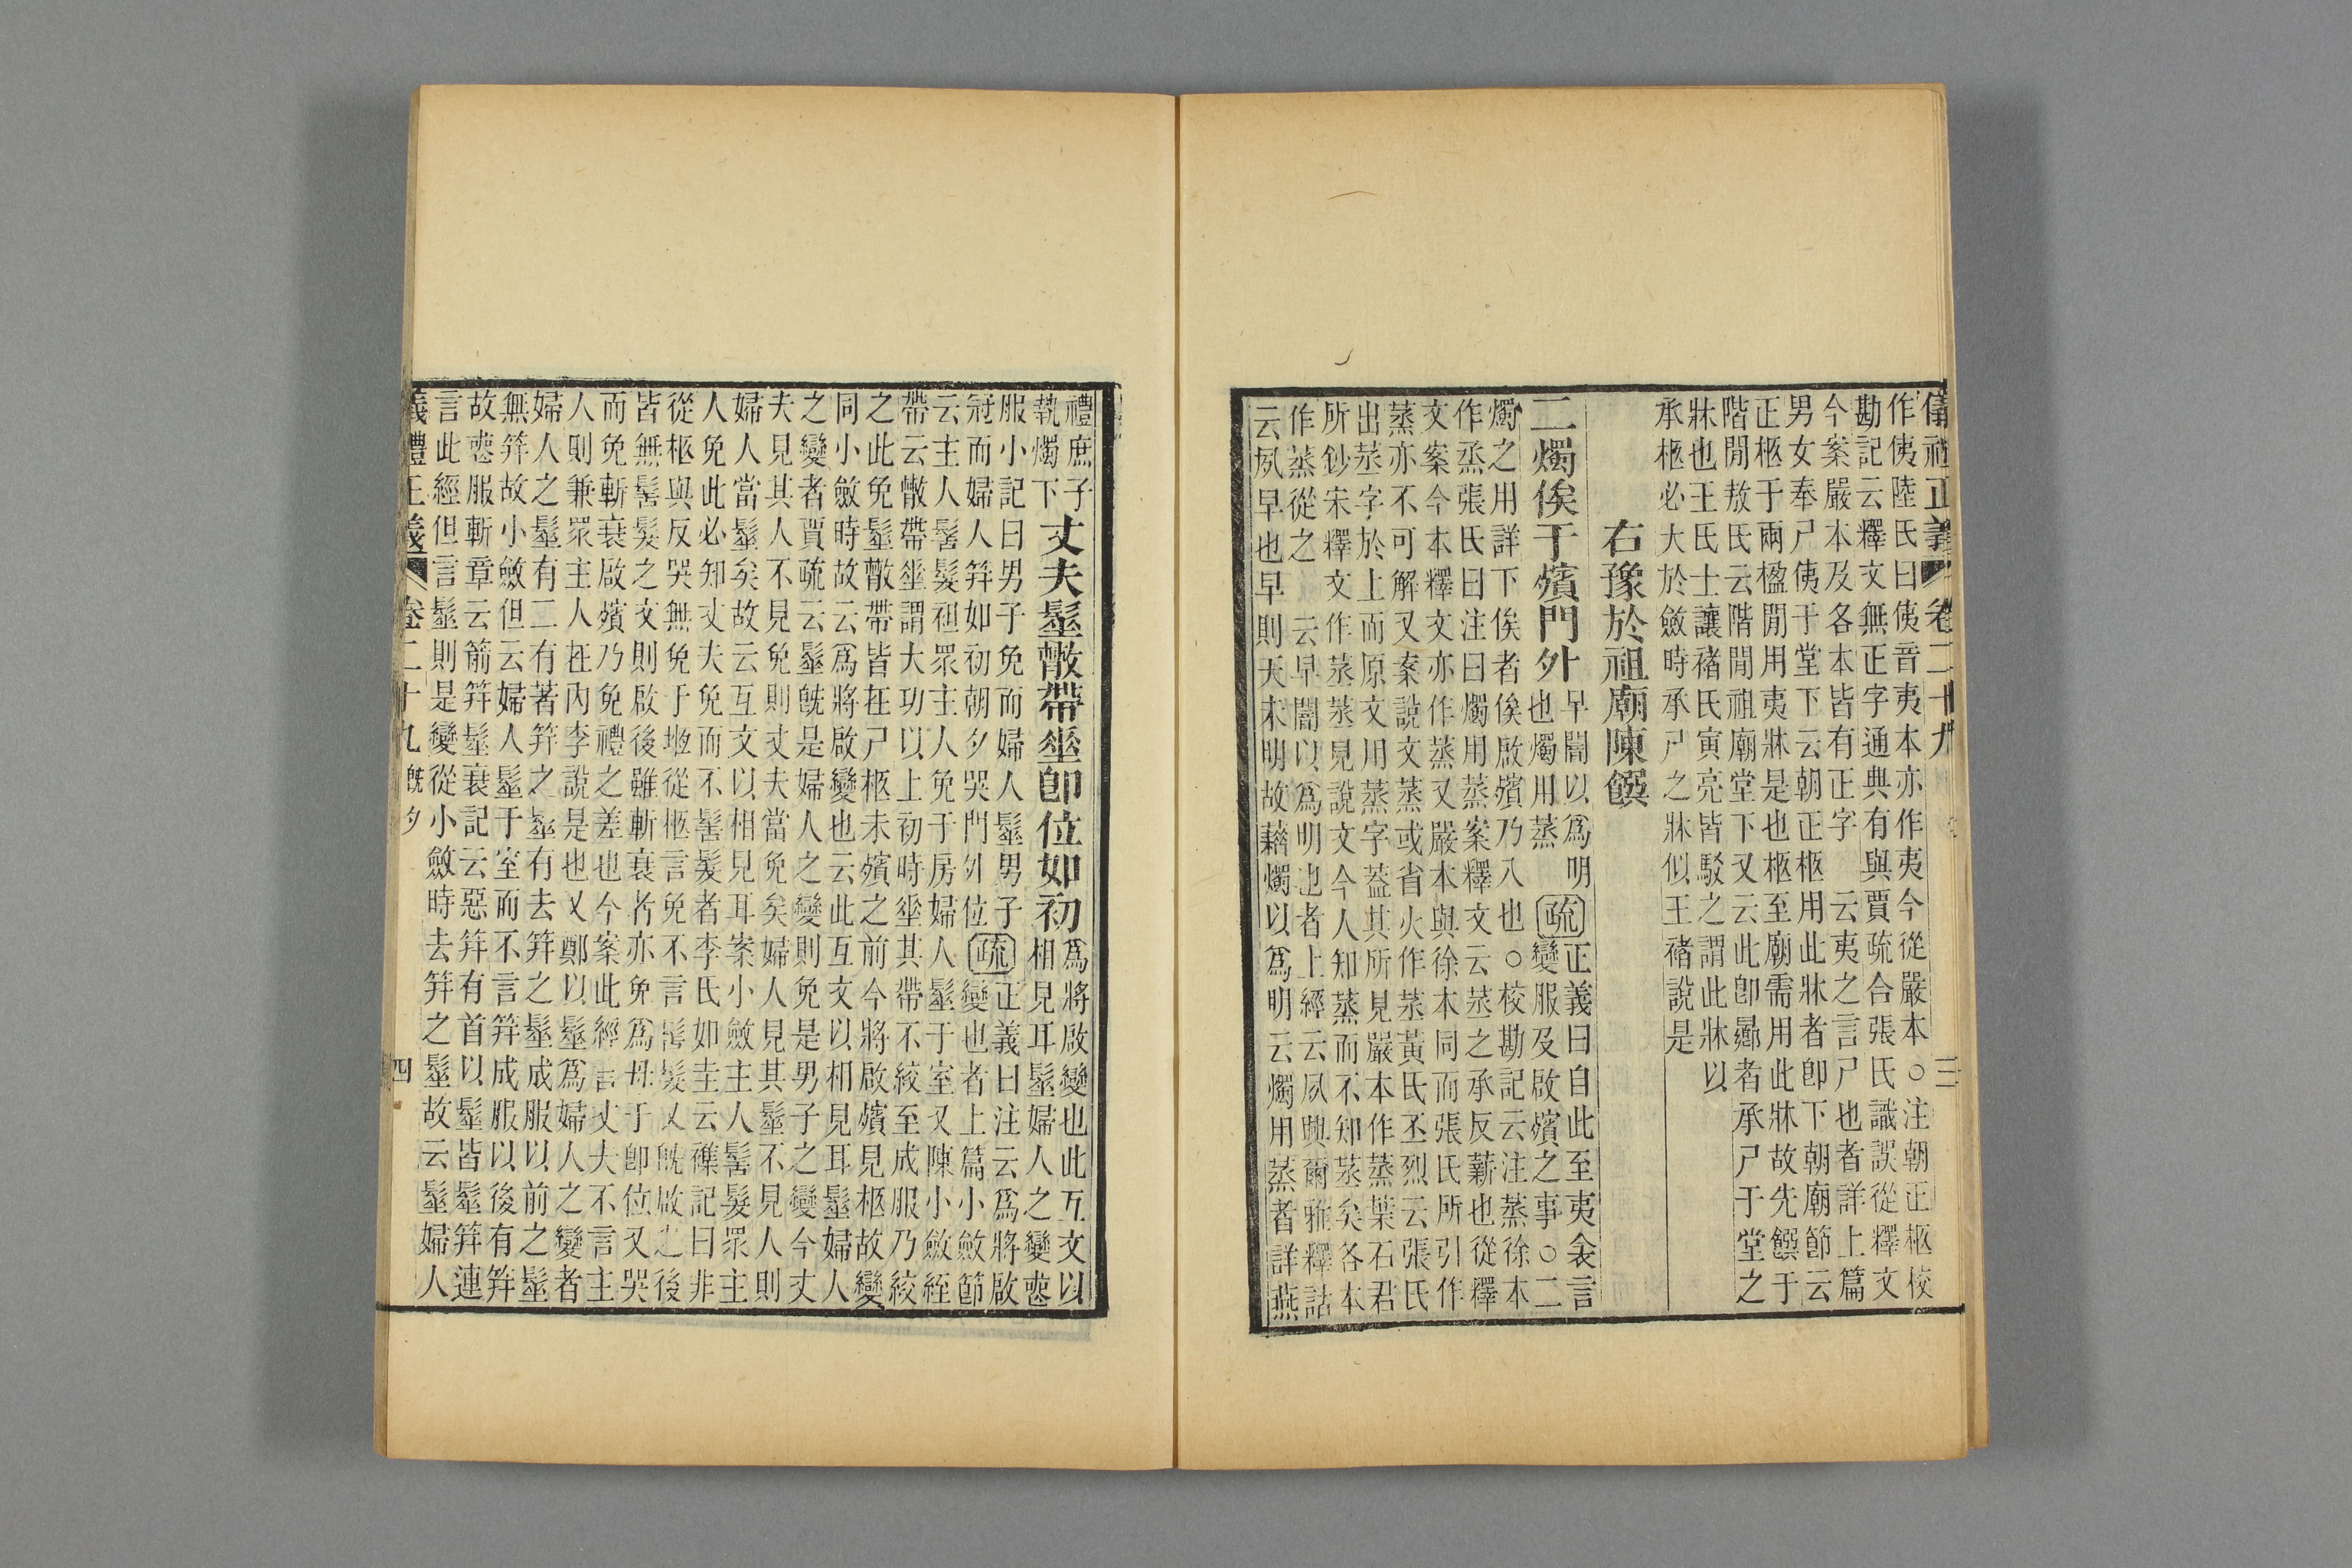 儀禮正義 卷二十九 三
作侇陸氏曰侇音夷本亦作夷今從嚴本○注朝正柩校
勘記云釋文無正字通典有與賈疏合張氏識誤從釋文
今案嚴本及各本皆有正字 云夷之言尸也者詳上篇
男女奉尸侇于堂下云朝正柩用此牀者卽下朝廟節云
正柩于兩楹閒用夷牀是也柩至廟需用此牀故先饌于
階閒敖氏云階閒祖廟堂下又云此卽曏者承尸于堂之
牀也王氏士讓褚氏寅亮皆駁之謂此牀以
承柩必大於斂時承尸之牀似王褚說是
右豫於祖廟陳饌
二燭俟于殯門外
早闇以爲明
也燭用蒸
疏
正義曰自此至夷衾言
變服及啟殯之事○二
燭之用詳下俟者俟啟殯乃入也○校勘記云注蒸徐本
作烝張氏曰注曰燭用蒸案釋文云蒸之承反薪也從釋
文案今本釋文亦作蒸又嚴本與徐本同而張氏所引作
蒸亦不可解又案說文蒸或省火作𦮔黃氏丕烈云張氏
出𦮔字於上而原文用蒸字葢其所見嚴本作蒸葉石君
所鈔宋釋文作𦮔𦮔見說文今人知蒸而不知𦮔矣各本
作蒸從之 云早闇以爲明也者上經云夙興爾雅釋詁
云夙早也早則天未明故藉燭以爲明云燭用蒸者詳燕
禮庶子
執燭下
丈夫髽散帶垂卽位如初
爲將啟變也此互文以
相見耳髽婦人之變喪
服小記曰男子免而婦人髽男子
冠而婦人笄如初朝夕哭門外位
疏
正義曰注云爲將啟
變也者上篇小斂節
云主人髺髮袒眾主人免于房婦人髽于室又陳小斂絰
帶云散帶垂謂大功以上初時垂其帶不絞至成服乃絞
之此免髽散帶皆在尸柩未殯之前今將啟殯見柩故變
同小斂時故云爲將啟變也云此互文以相見耳髽婦人
之變者賈疏云髽旣是婦人之變則免是男子之變今丈
夫見其人不見免則丈夫當免矣婦人見其髽不見人則
婦人當髽矣故云互文以相見耳案小斂主人髺髮眾主
人免此必知丈夫免而不髺髮者李氏如圭云禮記曰非
從柩與反哭無免于堩從柩言免不言髺髮又旣啟之後
皆無髺髮之文則啟後雖斬衰者亦免爲母于卽位又哭
而免斬衰啟殯乃免禮之差也今案此經言丈夫不言主
人則兼眾主人在內李說是也又鄭以髽爲婦人之變者
婦人之髽有二有著笄之髽有去笄之髽成服以前之髽
無笄故小斂但云婦人髽于室而不言笄成服以後有笄
故喪服斬章云箭笄髽衰記云惡笄有首以髽皆髽笄連
言此經但言髽則是變從小斂時去笄之髽故云髽婦人
義禮正義 卷二十九 旣夕 四